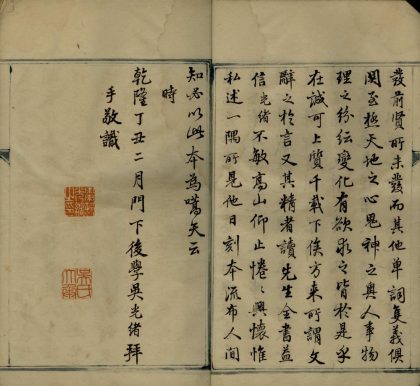 發前賢所未發而其他單詞隻義俱
関至極天地之心鬼神之奥人事物
理之紛紜變化有欲求之皆於是乎
在誠可上質千載下俟方來所謂文
辭之於言又其精者讀先生全書益
信光緒不敏高山仰止惓惓興懷惟
私述一隅所見他日刻本流布人間
知必以此本為嚆矢云
時
乾隆丁丑二月門下後學吳光緒拜
手敬識